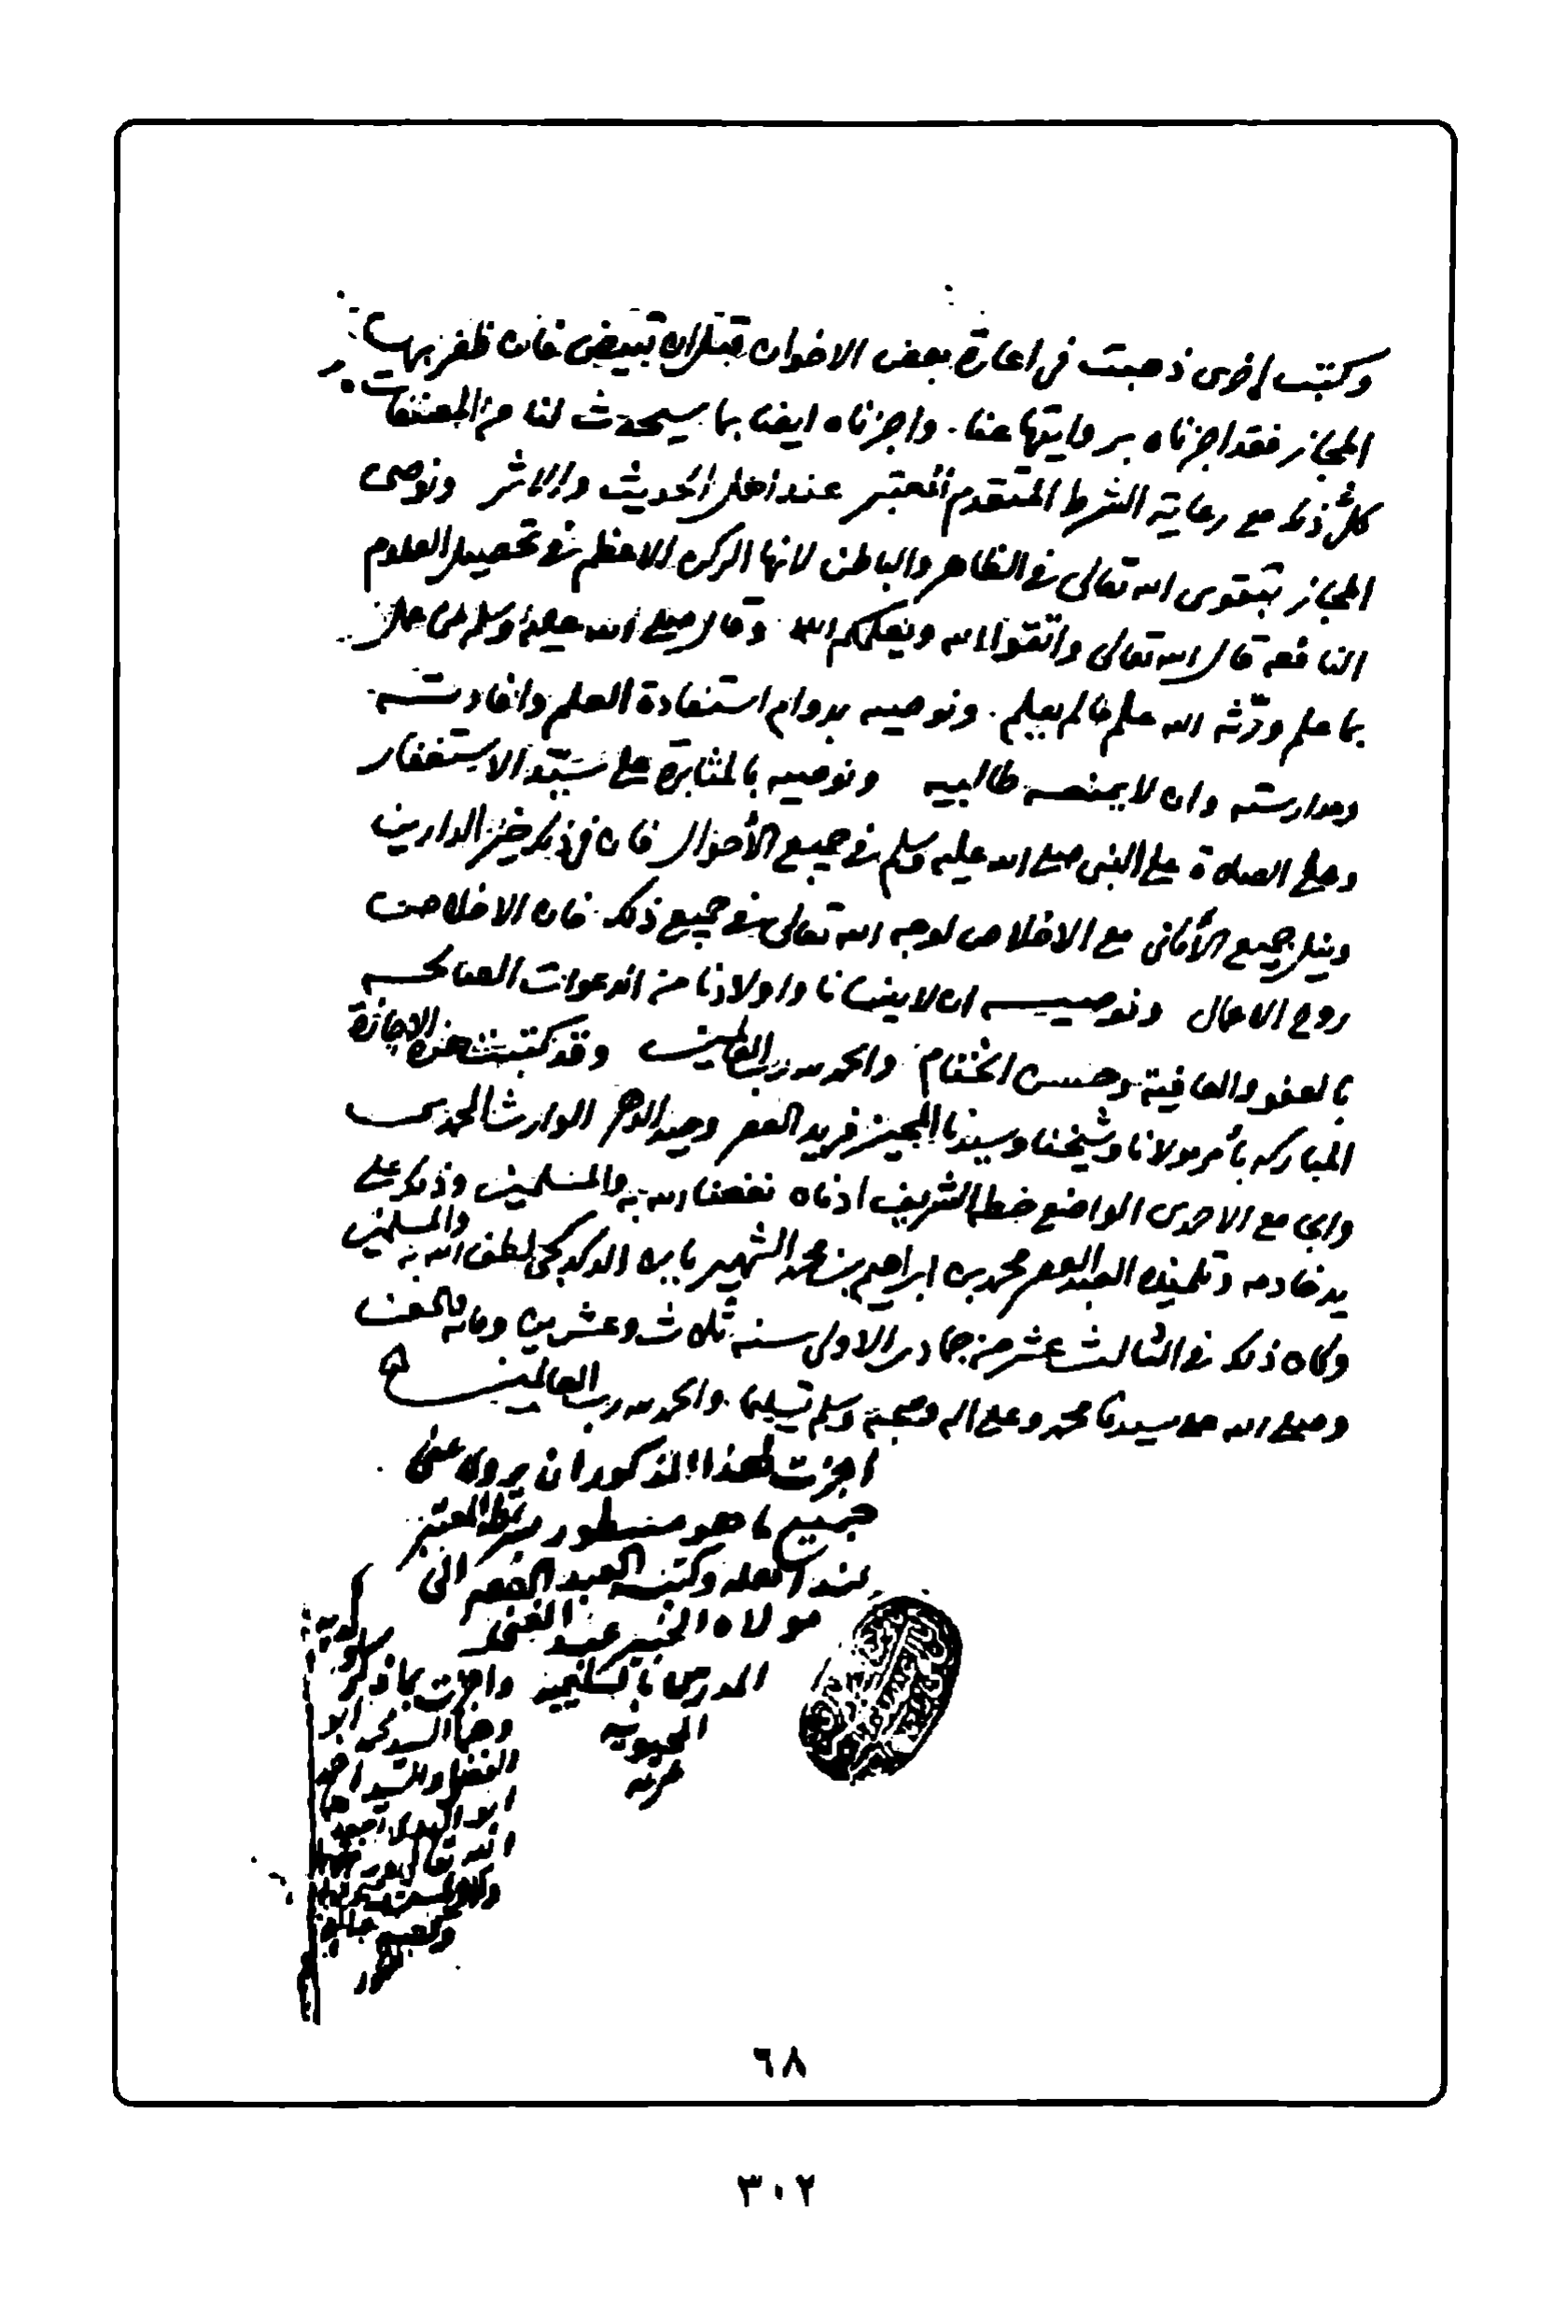 وكتب اخرى ذهبت فى اعارة بعض الاخوان قبل ان تبيض فان ظفر بها
المجاز فقد اجزناه بروايتها عنا. واجزناه ايضا بما سيحدث لنا من المصنفات
كل ذلك مع رعاية الشرط المتقدم المعتبر عند اهل الحديث والاثر ونوصى
المجاز بتقوى الله تعالى في الظاهر والباطن لانها الركن الاعظم في تحصيل العلوم
النافعة قال الله تعالى واتقوا الله ويعلمكم الله وقال صلى الله عليه وسلم من عمل
بما علم ورّثه الله علم مالم يعلم. ونوصيه بدوام استفادة العلم وافادته
ومدارسته وان لا يمنعه طالبيه ونوصيه بالمثابرة على سيّد الاستغفار
وعلى الصلاة على النبى صلى الله عليه وسلم في جميع الأحوال فان في ذلك خير الدارين
ونيل جميع الأمانى مع الاخلاص لوجه الله تعالى في جميع ذلك فان الاخلاص
روح الاعمال ونوصيه ان لا ينسانا واولادنا من الدعوات الصالحه
بالعفو والعافية وحسن الختام والحمد لله رب العالمين وقد كتبت هذه الاجازة
المباركه بأمر مولانا وشيخنا وسيدنا المجيز فريد العصر وحيد الدهر الوارث المحمدى
والجامع الاحدى الواضع خطه الشريف ادناه نفعنا الله به والمسلمين وذلك على
يد خادمه وتلميذه العبد الفقير محمد بن ابراهيم بن محمد الشهير بابن الدكدكجى لطف الله به والمسلمين
وكان ذلك في الثالث عشر من جمادى الاولى سنه ثلاث وعشرين ومايه والف
وصلى الله على سيدنا محمد وعلى اله وصحبه وسلم تسليما. والحمد لله رب العالمين
اجزت لهذا المذكور ان يروى عنى
جميع ما هو مسطور بشرطه المعتبر
عند اهله وكتبه العبد الفقير الى
مولاه الخبير عبد الغنى
المدرس بالسليمية واجزت بما ذكر
٦٨
٣٠٢